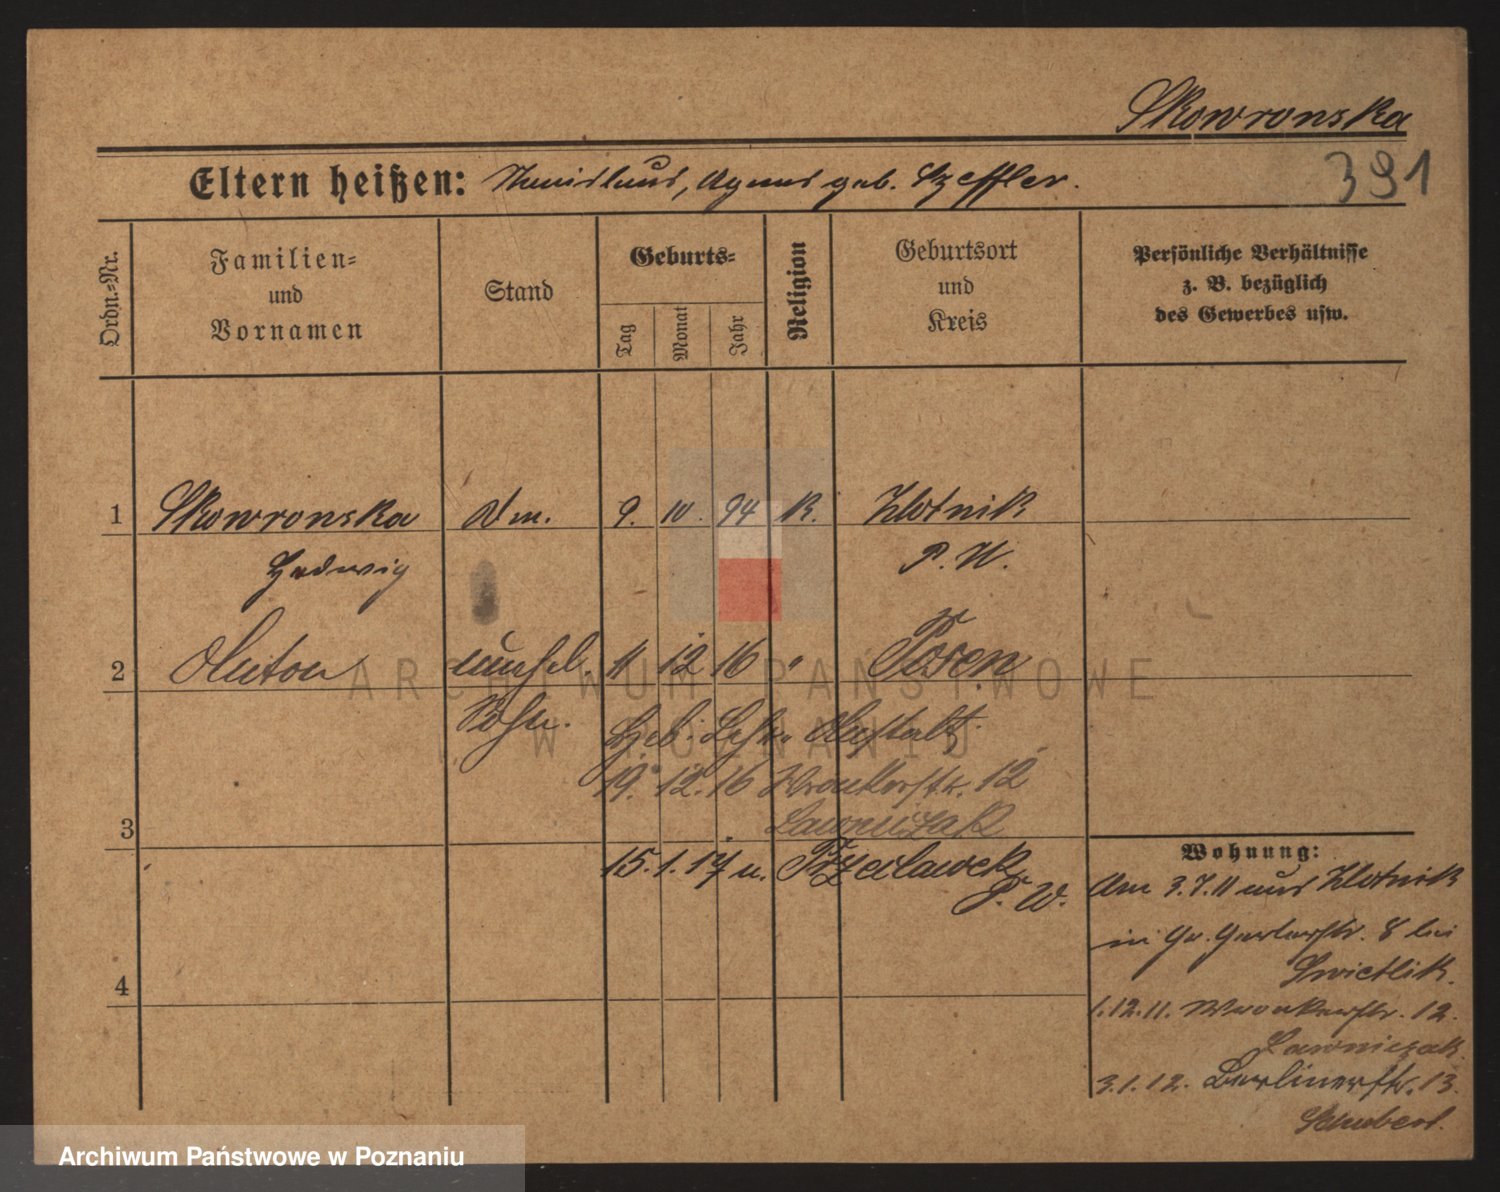 Skowronska
391
Eltern heißen: Stanislaus, Agnes geb. Szeffler.
Ordn.-Nr.
Familien- und Vornamen
Stand
Geburts-
Tag
Monat
Jahr
Religion
Geburtsort und Kreis
Persönliche Verhältnisse z. B. bezüglich des Gewerbes usw.
1 Skowronska 9. 10. 94 K. Zlotnik
Hedwig P. W.
2 Anton unehel. 11 12 16 " Posen
Sohn.
19. 12. 16 Wronkerstr. 12
Lawniczak
3
15. 1. 17 n. Przeclawek
P. W.
4
Wohnung:
Am 3.7.11 aus Zlotnik
in Gr. Gerberstr. 8 bei
Swietlik.
1.12.11. Wronkerstr. 12.
Lawniczak.
3.1.12. Berlinerstr. 13.
Schubert.
ARCHIWUM PAŃSTWOWE
W POZNANIU
Archiwum Państwowe w Poznaniu